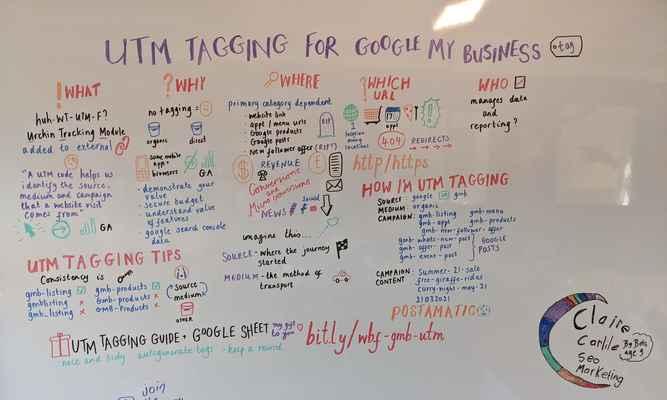 UTM TAGGING FOR GOOGLE MY BUSINESS
tag
! WHAT
huh-WT-UTM-F?
Urchin Tracking Module
added to external
"A UTM code helps us
identify the source,
medium and campaign
that a website visit
comes from"
GA
? WHY
no tagging =
organic
direct
some mobile
apps +
browsers
GA
- demonstrate your
value
- secure budget
- understand value
of features
- google search console
data
WHERE
primary category dependent
- website link
- appt / menu urls
- Google products
- Google posts
- New follower offer (RIP?)
RIP
REVENUE
Conversions
and
Micro conversions
NEWS
Social
imagine this...
SOURCE - where the journey
started
MEDIUM - the method of
transport
? WHICH
URL
appt
404
REDIRECTS
http/https
WHO
manages data
and
reporting?
HOW I'M UTM TAGGING
SOURCE google gmb
MEDIUM organic
CAMPAIGN:
gmb-listing
gmb-menu
gmb-appt
gmb-products
gmb-new-follower-offer
gmb-whats-new-post
gmb-offer-post
gmb-event-post
GOOGLE
POSTS
CAMPAIGN
CONTENT
Summer-21-sale
free-giraffe-rides
curry-night-may-21
21032021
POSTAMATIC
UTM TAGGING TIPS
Consistency is
gmb-listing
gmblisting
gmb_listing
gmb-products
Gmb-products
GMB-Products
source
medium
other
UTM TAGGING GUIDE + GOOGLE SHEET
my gift
to you
bit.ly/wbf-gmb-utm
nice and tidy
autogenerate tags
- keep a record
Claire
Carlile
SEO
Marketing
By Beti
age 9
join